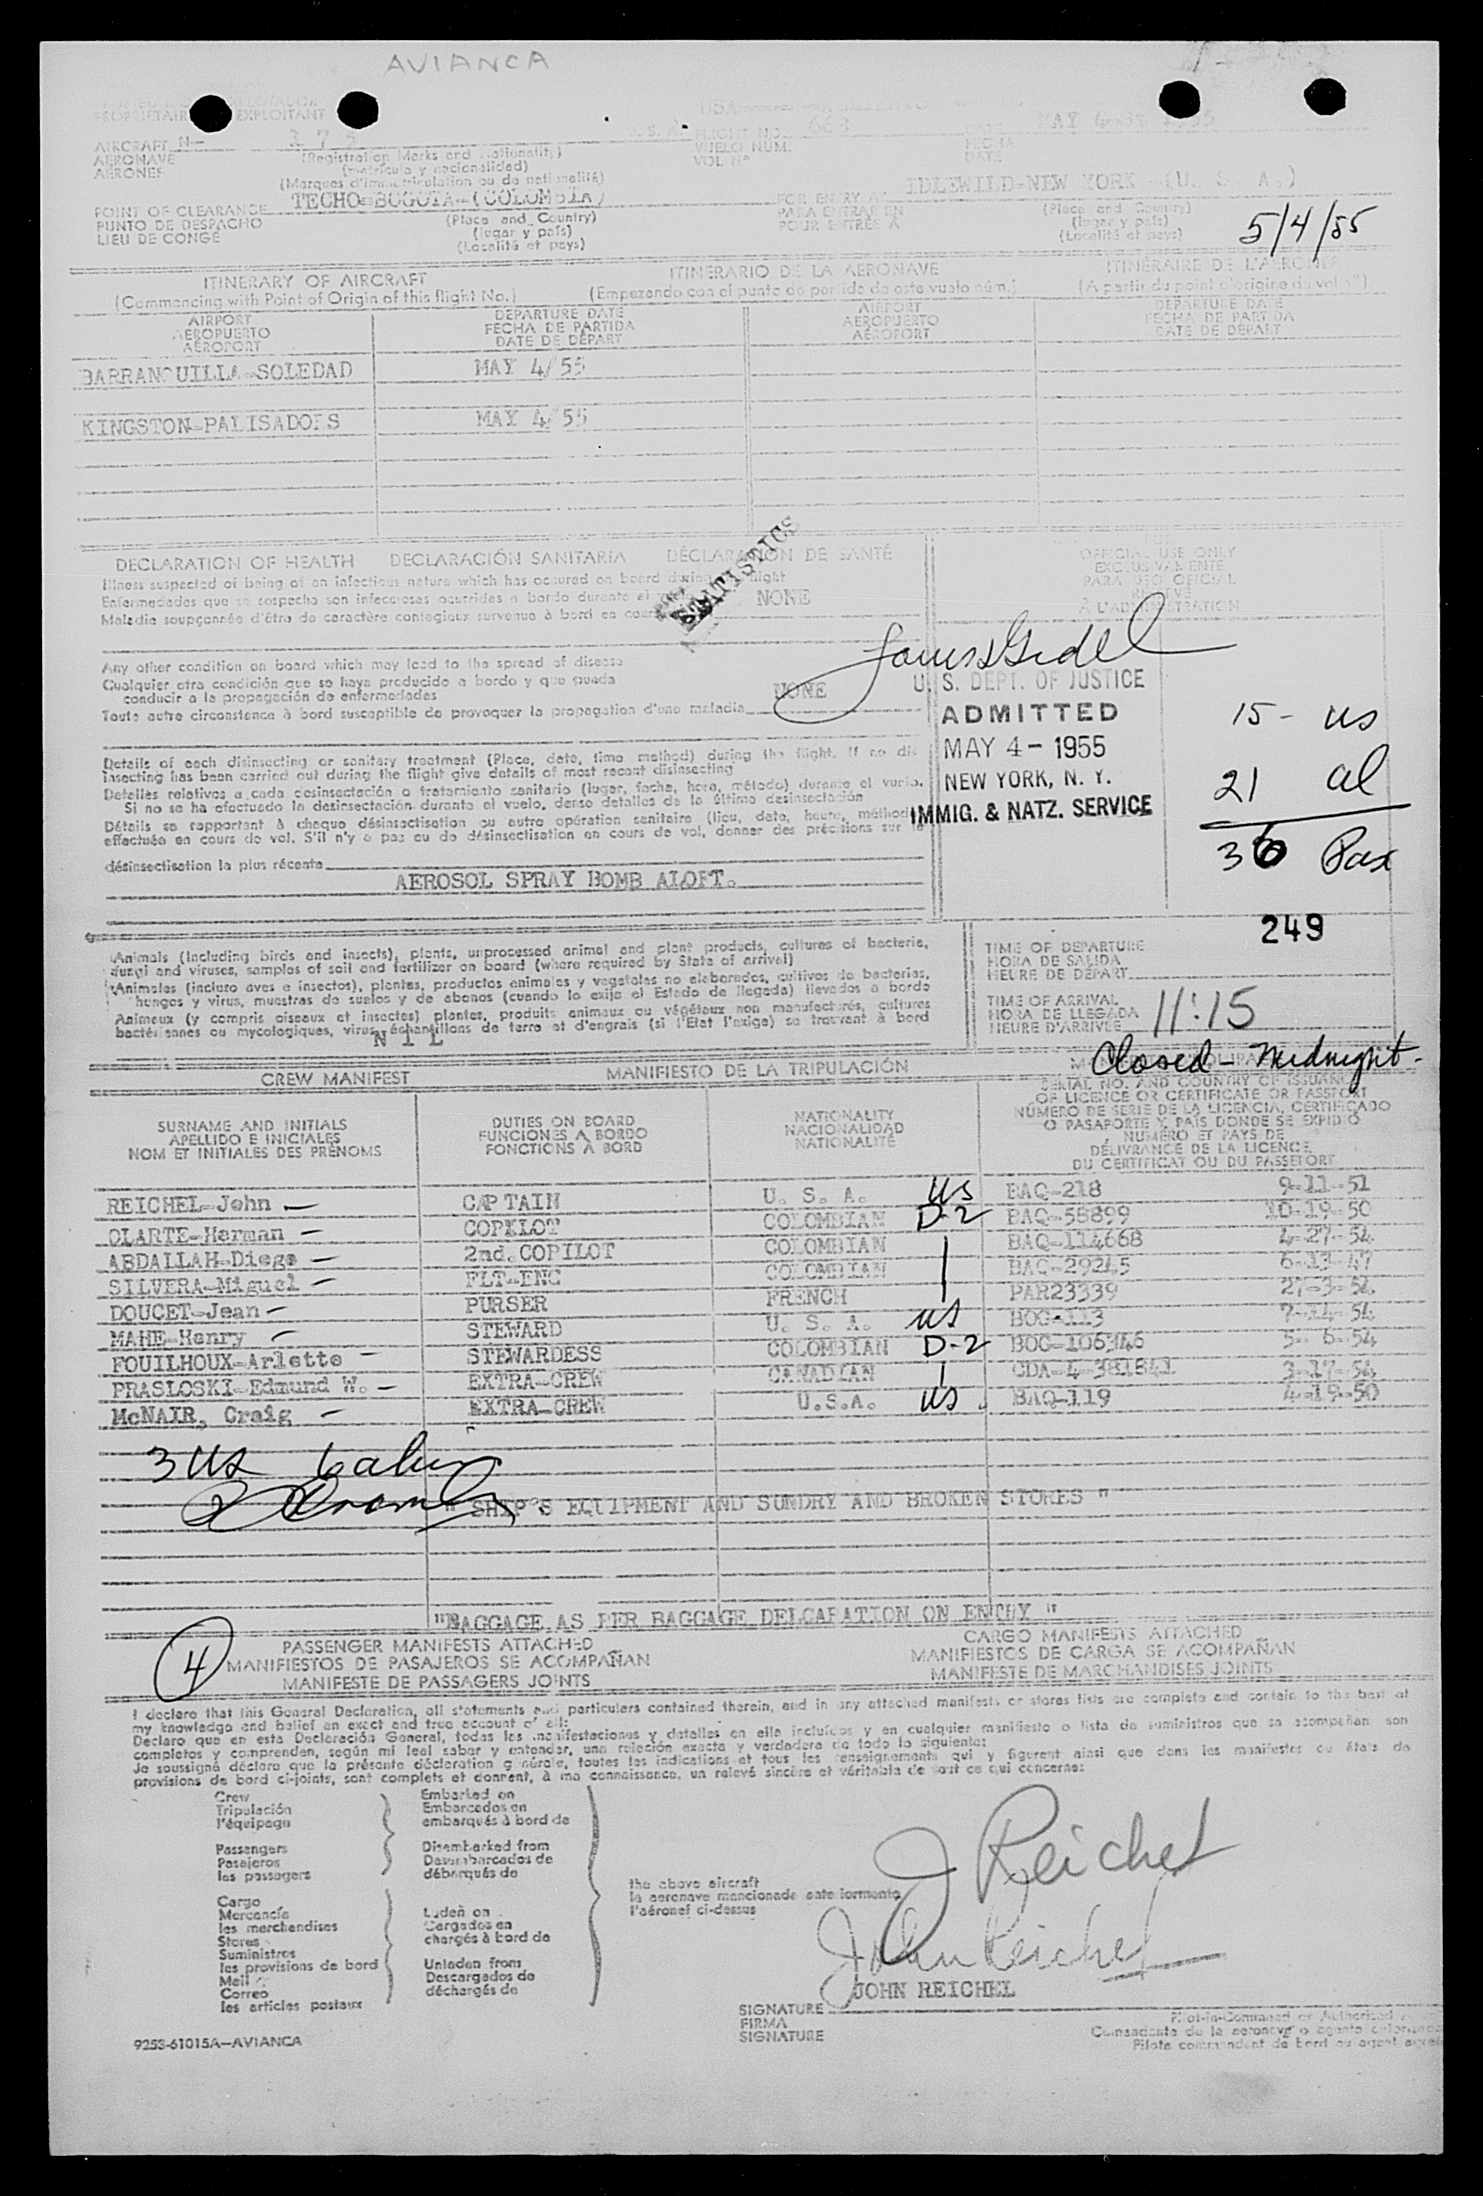 AVIANCA
EXPLOITANT
AIRCRAFT N-
AERONAVE
AERONEF
(Registration Marks and Nationality)
(matrícula y nacionalidad)
(Marques d'immatriculation ou de nationalité)
FLIGHT NO.
VUELO NUM.
VOL Nº
POINT OF CLEARANCE TECHO-BOGOTA-(COLOMBIA)
PUNTO DE DESPACHO
LIEU DE CONGÉ
(Place and Country)
(lugar y país)
(Localité et pays)
FOR ENTRY AT IDLEWILD-NEW YORK (U. S. A.)
PARA ENTRAR EN
POUR ENTRÉE A
(Place and Country)
(lugar y país)
(Localité et pays)
5/4/55
ITINERARY OF AIRCRAFT ITINERARIO DE LA AERONAVE ITINÉRAIRE DE L'AÉRONEF
(Commencing with Point of Origin of this flight No.) (Empezando con el punto de partida de este vuelo núm.) (A partir du point d'origine du vol nº)
AIRPORT
AEROPUERTO
AÉROPORT
DEPARTURE DATE
FECHA DE PARTIDA
DATE DE DÉPART
AIRPORT
AEROPUERTO
AÉROPORT
DEPARTURE DATE
FECHA DE PARTIDA
DATE DE DÉPART
BARRANQUILLA-SOLEDAD MAY 4/55
KINGSTON-PALISADOES MAY 4/55
STATISTICS
DECLARATION OF HEALTH DECLARACIÓN SANITARIA DÉCLARATION DE SANTÉ
Illness suspected of being of an infectious nature which has occured on board during the flight
Enfermedades que se sospecha son infecciosas ocurridas a bordo durante el NONE
Maladie soupçonnée d'être de caractère contagieux survenue à bord en cours
OFFICIAL USE ONLY
EXCLUSIVAMENTE
PARA USO OFICIAL
RÉSERVÉ
À L'ADMINISTRATION
Any other condition on board which may lead to the spread of disease
Cualquier otra condición que se haya producido a bordo y que pueda
conducir a la propagación de enfermedades NONE
Toute autre circonstance à bord susceptible de provoquer la propagation d'une maladie
U. S. DEPT. OF JUSTICE
ADMITTED
MAY 4 - 1955
NEW YORK, N. Y.
IMMIG. & NATZ. SERVICE
15 - US
21 al
36 Pax
Details of each disinsecting or sanitary treatment (Place, date, time method) during the flight. If no dis-
insecting has been carried out during the flight give details of most recent disinsecting
Detalles relativos a cada desinsectación o tratamiento sanitario (lugar, fecha, hora, método) durante el vuelo.
Si no se ha efectuado la desinsectación durante el vuelo, dense detalles de la última desinsectación
Détails se rapportant à chaque désinsectisation ou autre opération sanitaire (lieu, date, heure, méthode)
effectuée en cours de vol. S'il n'y a pas eu de désinsectisation en cours de vol, donner des précisions sur la
désinsectisation la plus récente
AEROSOL SPRAY BOMB ALOFT.
249
Animals (including birds and insects), plants, unprocessed animal and plant products, cultures of bacteria,
fungi and viruses, samples of soil and fertilizer on board (where required by State of arrival)
Animales (incluso aves e insectos), plantas, productos animales y vegetales no elaborados, cultivos de bacterias,
hongos y virus, muestras de suelos y de abonos (cuando lo exija el Estado de llegada) llevados a bordo
Animaux (y compris oiseaux et insectes) plantes, produits animaux ou végétaux non manufacturés, cultures
bactériennes ou mycologiques, virus, échantillons de terre et d'engrais (si l'Etat l'exige) se trouvant à bord
N I L
TIME OF DEPARTURE
HORA DE SALIDA
HEURE DE DÉPART
TIME OF ARRIVAL
HORA DE LLEGADA
HEURE D'ARRIVÉE
11:15
Closed - Midnight -
CREW MANIFEST MANIFIESTO DE LA TRIPULACIÓN
SURNAME AND INITIALS
APELLIDO E INICIALES
NOM ET INITIALES DES PRÉNOMS
DUTIES ON BOARD
FUNCIONES A BORDO
FONCTIONS À BORD
NATIONALITY
NACIONALIDAD
NATIONALITÉ
SERIAL NO. AND COUNTRY OF ISSUANCE
OF LICENCE OR CERTIFICATE OR PASSPORT
NÚMERO DE SERIE DE LA LICENCIA, CERTIFICADO
O PASAPORTE Y PAÍS DONDE SE EXPIDIÓ
NUMÉRO ET PAYS DE
DÉLIVRANCE DE LA LICENCE,
DU CERTIFICAT OU DU PASSEPORT
REICHEL-John — CAPTAIN U. S. A. US BAQ-218 9-11-51
OLARTE-Herman — COPILOT COLOMBIAN D-2 BAQ-58899 10-19-50
ABDALLAH-Diego — 2nd. COPILOT COLOMBIAN BAQ-114668 4-27-54
SILVERA-Miguel — FLT-ENG COLOMBIAN BAQ-29245 6-13-47
DOUCET-Jean — PURSER FRENCH PAR23339 27-3-54
MAHE-Henry — STEWARD U. S. A. US BOG-113 7-14-54
FOUILHOUX-Arlette — STEWARDESS COLOMBIAN D-2 BOG-106346 5-6-54
PRASLOSKI-Edmund W. — EXTRA-CREW CANADIAN CDA-4-381841 3-17-54
McNAIR, Craig — EXTRA-CREW U.S.A. US BAQ-119 4-19-50
3 US 6 alien
" SHIP'S EQUIPMENT AND SUNDRY AND BROKEN STORES "
"BAGGAGE AS PER BAGGAGE DELCARATION ON ENTRY "
4
PASSENGER MANIFESTS ATTACHED
MANIFIESTOS DE PASAJEROS SE ACOMPAÑAN
MANIFESTE DE PASSAGERS JOINTS
CARGO MANIFESTS ATTACHED
MANIFIESTOS DE CARGA SE ACOMPAÑAN
MANIFESTE DE MARCHANDISES JOINTS
I declare that this General Declaration, all statements and particulars contained therein, and in any attached manifests or stores lists are complete and contain to the best of
my knowledge and belief an exact and true account of all:
Declaro que en esta Declaración General, todas las manifestaciones y detalles en ella incluídos y en cualquier manifiesto o lista de suministros que se acompañan son
completos y comprenden, según mi leal saber y entender, una relación exacta y verdadera de todo lo siguiente:
Je soussigné déclare que la présente déclaration générale, toutes les indications et tous les renseignements qui y figurent ainsi que dans les manifestes ou états de
provisions de bord ci-joints, sont complets et donnent, à ma connaissance, un relevé sincère et véritable de tout ce qui concerne:
Crew
Tripulación
l'équipage
Passengers
Pasajeros
les passagers
Cargo
Mercancía
les marchandises
Stores
Suministros
les provisions de bord
Mail
Correo
les articles postaux
Embarked on
Embarcados en
embarqués à bord de
Disembarked from
Desembarcados de
débarqués de
Laden on
Cargados en
chargés à bord de
Unladen from
Descargados de
déchargés de
the above aircraft
la aeronave mencionada anteriormente
l'aéronef ci-dessus
J Reichel
John Reichel
JOHN REICHEL
SIGNATURE
FIRMA
SIGNATURE
Pilot-in-Command or Authorized
Comandante de la aeronave o agente
Pilote commandant de bord ou agent
9253-61015A—AVIANCA